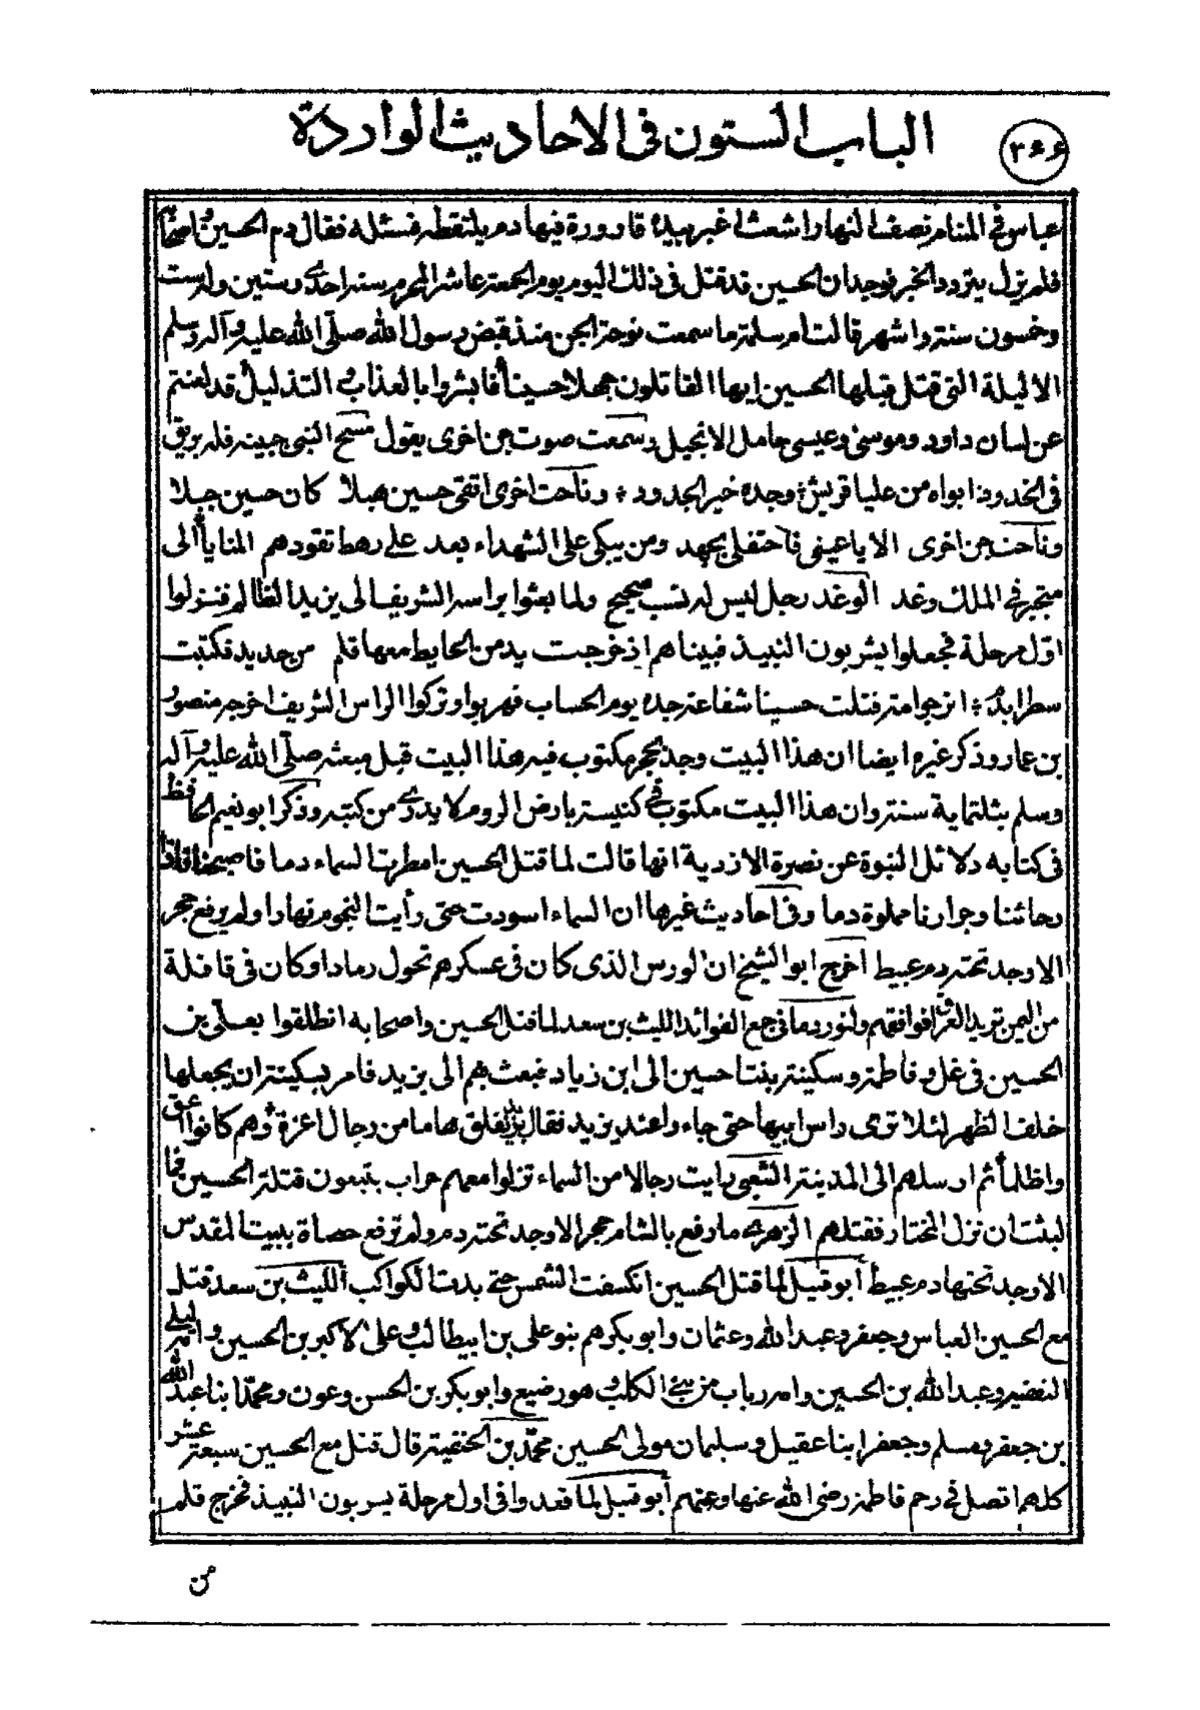 الباب الستون فى الاحاديث الواردة
عباس فى المنام نصف النهار اشعث اغبر بيده قارورة فيها دم يلتقطه فسئله فقال دم الحسين واصحابه
فلم يزل يتردد الخبر فوجد ان الحسين قد قتل فى ذلك اليوم يوم الجمعة عاشر المحرم سنة احدى وستين وله ست
وخمسون سنة واشهر قالت ام سلمة ما سمعت نوحة الجن منذ قبض رسول الله صلى الله عليه وآله وسلم
الا ليلة التى قتل قبلها الحسين ايها القاتلون جهلا حسينا فابشروا بالعذاب التذليل قد لعنتم
عن لسان داود وموسى وعيسى حامل الانجيل وسمعت صوت جن اخرى يقول مسح النبى جبينه فله بريق
فى الخدود ابواه من عليا قريش وجده خير الجدود وناحت اخرى اتقى حسين هبلا كان حسين جبلا
وناحت جن اخرى الا يا عينى فاحتفلى بجهد ومن يبكى على الشهداء بعد على رهط تقودهم المنايا الى
متجبر فى الملك وغد الوغد رجل ليس له نسب صحيح ولما بعثوا براسه الشريف الى يزيد الظالم فنزلوا
اول مرحلة فجعلوا يشربون النبيذ فبينا هم اذ خرجت يد من الحايط معها قلم من حديد فكتبت
سطرا بدم اترجوا امة قتلت حسينا شفاعة جده يوم الحساب فهربوا وتركوا الراس الشريف اخرجه منصور
بن عمار وذكر غيره ايضا ان هذا البيت وجد بحجر مكتوب فيه هذا البيت قبل مبعثه صلى الله عليه وآله
وسلم بثلثماية سنة وان هذا البيت مكتوب فى كنيسة بارض الروم لا يدرى من كتبه وذكر ابو نعيم الحافظ
فى كتابه دلائل النبوة عن نصرة الازدية انها قالت لما قتل الحسين امطرت السماء دما فاصبحنا فاذا
رحائنا وجرارنا مملوة دما وفى احاديث غيرها ان السماء اسودت حتى رأيت النجوم نهارا ولم يرفع حجر
الا وجد تحته دم عبيط اخرج ابو الشيخ ان الورس الذى كان فى عسكرهم تحول رمادا وكان فى قافلة
من اليمن تريد العراق فوافقهم جمع الفوائد الليث بن سعد لما قتل الحسين واصحابه انطلقوا بعلى بن
الحسين فى غل وفاطمة وسكينة بنتا حسين الى ابن زياد فبعث بهم الى يزيد فامر بسكينة ان يجعلها
خلف الظهر لئلا ترى راس ابيها حتى جاء ولعند يزيد فقال يزيد نفلق هاما من رجال اعزة وهم كانوا اعق
واظلما ثم ارسلهم الى المدينة الشعبى رايت رجالا من السماء نزلوا معهم حراب يتبعون قتلة الحسين فما
لبثت ان نزل المختار فقتلهم الزهرى ما رفع بالشام حجر الا وجد تحته دم ولم ترفع حصاة ببيت المقدس
الا وجد تحتها دم عبيط ابو قبيل لما قتل الحسين انكسفت الشمس حتى بدت الكواكب الليث بن سعد قتل
مع الحسين العباس وجعفر وعبد الله وعثمان وابو بكر هم بنو على بن ابيطالب وعلى الاكبر بن الحسين وامه ليلى
وعبد الله بن الحسين وامه رباب من بنى الكلب هو رضيع وابو بكر بن الحسن وعون ومحمد ابنا عبد الله
بن جعفر ومسلم وجعفر ابنا عقيل وسليمان مولى الحسين محمد بن الحنفية قال قتل مع الحسين سبعة عشر
كلهم اتصل فى رحم فاطمة رضى الله عنها وعنهم ابو قبيل لما قعدوا فى اول مرحلة يشربون النبيذ فخرج قلم
من